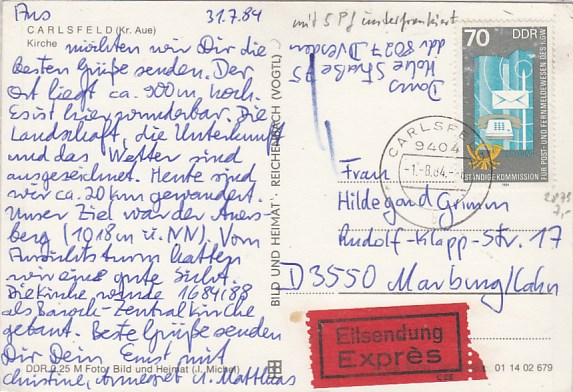 Aus 31.7.84
CARLSFELD (Kr. Aue)
Kirche
möchten wir Dir die
besten Grüße senden. Der
Ort liegt ca. 900 m hoch.
Es ist hier wunderbar. Die
Landschaft, die Unterkunft
und das Wetter sind
ausgezeichnet. Heute sind
wir ca. 20 km gewandert.
Unser Ziel war der Auers-
berg (1018 m ü. NN). Vom
Aussichtsturm hatten
wir eine gute Sicht.
Die Kirche wurde 1684/88
als Barock-Zentralkirche
gebaut. Beste Grüße senden
Dir Dein Ernst mit
Christine, Anneret u. Matthias
DDR 0.25 M Foto: Bild und Heimat (J. Michel)
BILD UND HEIMAT · REICHENBACH (VOGTL)
mit 5 Pf unterfrankiert
Hohe Straße 75
ddr 8027 Dresden
70 DDR
STÄNDIGE KOMMISSION
FÜR POST- UND FERNMELDEWESEN DES RGW
1984
CARLSFELD
9404
-1.-8.84.-
Frau
Hildegard Grimm
Rudolf-Klapp-Str. 17
D 3550 Marburg/Lahn
Eilsendung
Exprès
01 14 02 679